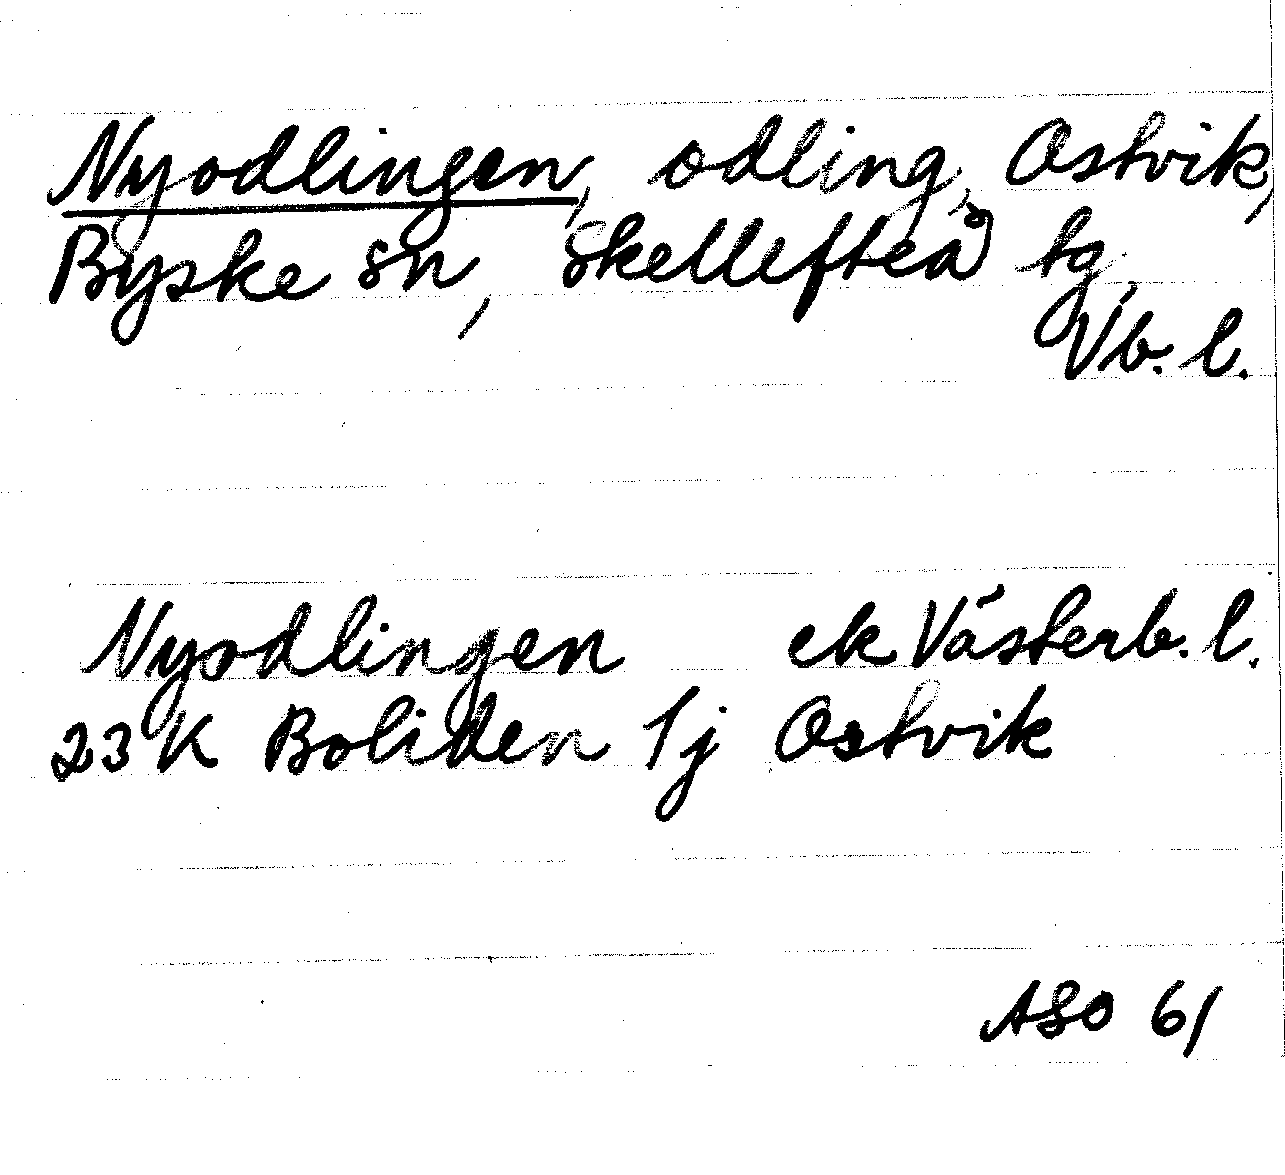 Nyodlingen, odling, Ostvik,
Byske sn, Skellefteå tg,
Vb. l.
Nyodlingen ek Västerb. l.
23 K Boliden 1j Ostvik
ASO 61